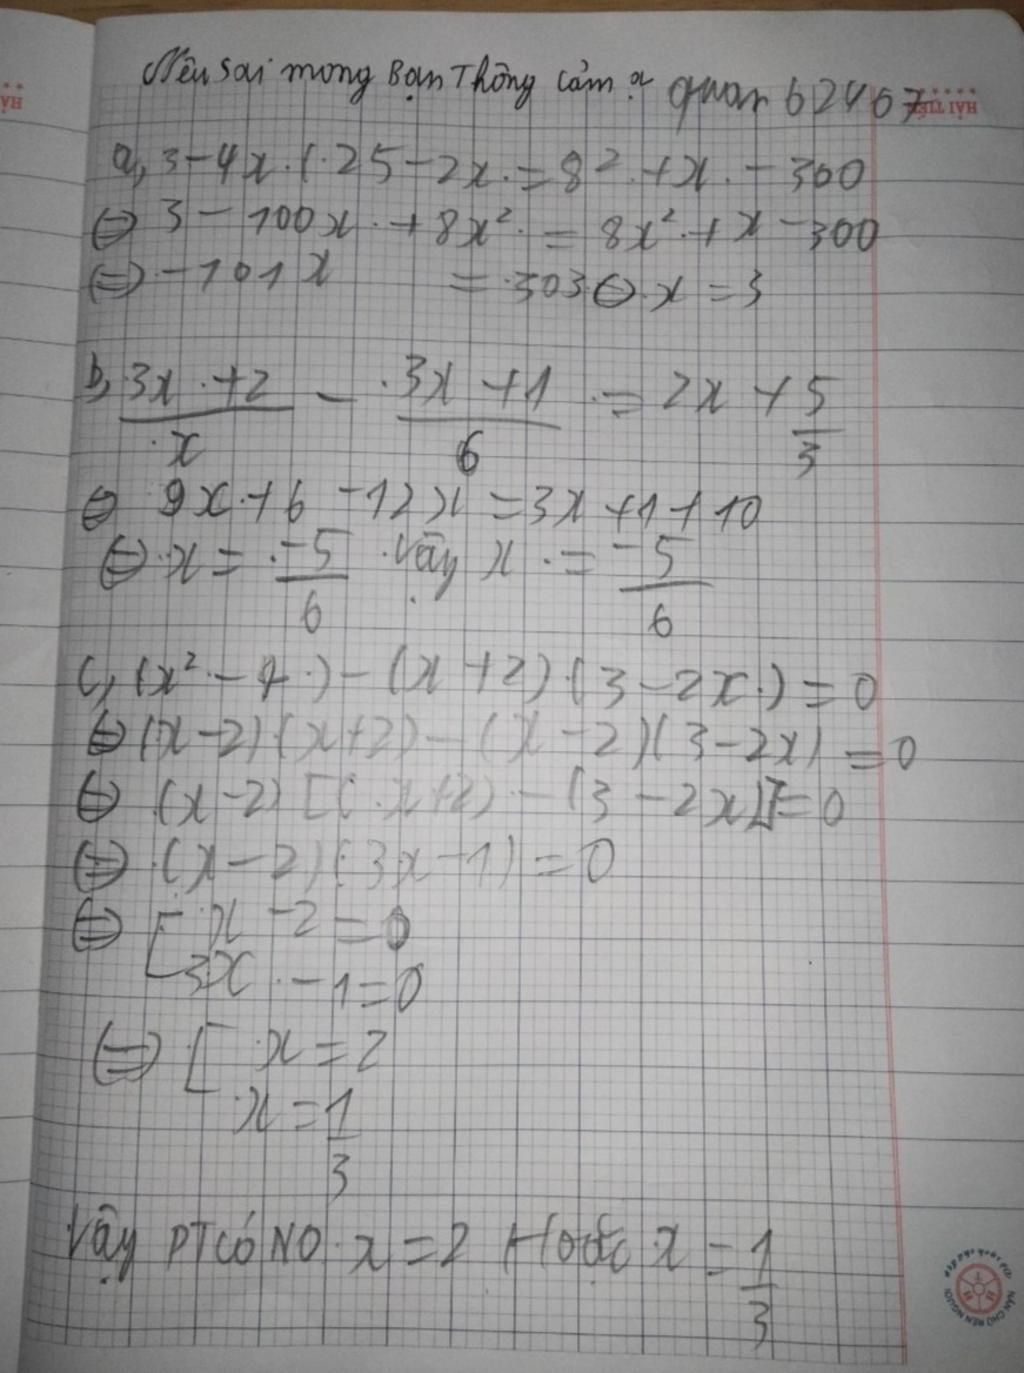 Nếu sai mong Bạn Thông cảm ạ quan 62467
HẢI TIẾN
a, 3-4x.(.25-2x.=8².+x.-300
⇔ 3-100x.+8x².=8x².+x-300
⇔.-101x =.303⇔.x=3
b, 3x.+2/.x - .3x+1/6 .=2x+5/3
⇔ 9x.+6-12x=3x+1+10
⇔.x=.-5/6 .Vậy x.=-5/6
c, (x².-4.)-(x+2).(3-2x.)=0
⇔(x-2)(x+2)-(x-2)(3-2x)=0
⇔ (x-2)[(.x+2)-(3-2x)]=0
⇔.(x-2)(3x-1)=0
⇔ [ x-2=0
3x.-1=0
⇔.[ .x=2
.x=1/3
Vậy PT có NO.x=2 Hoặc x=1/3